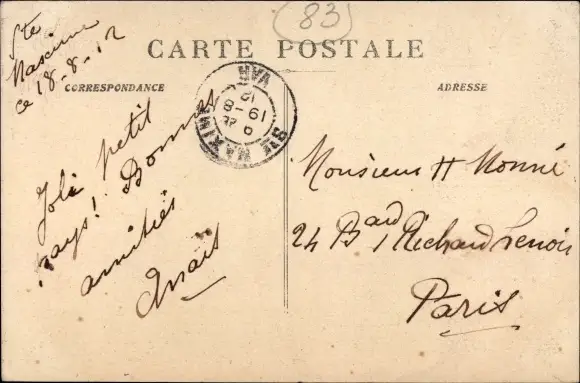 (83)
CARTE POSTALE
CORRESPONDANCE
ADRESSE
Ste
Maxime
ce 18-8-12
Joli petit
pays! Bonnes
amitiés
Anaïs
STE MAXIME
19-8
12
VAR
Monsieur H Monné
24 Bard Richard Lenoir
Paris